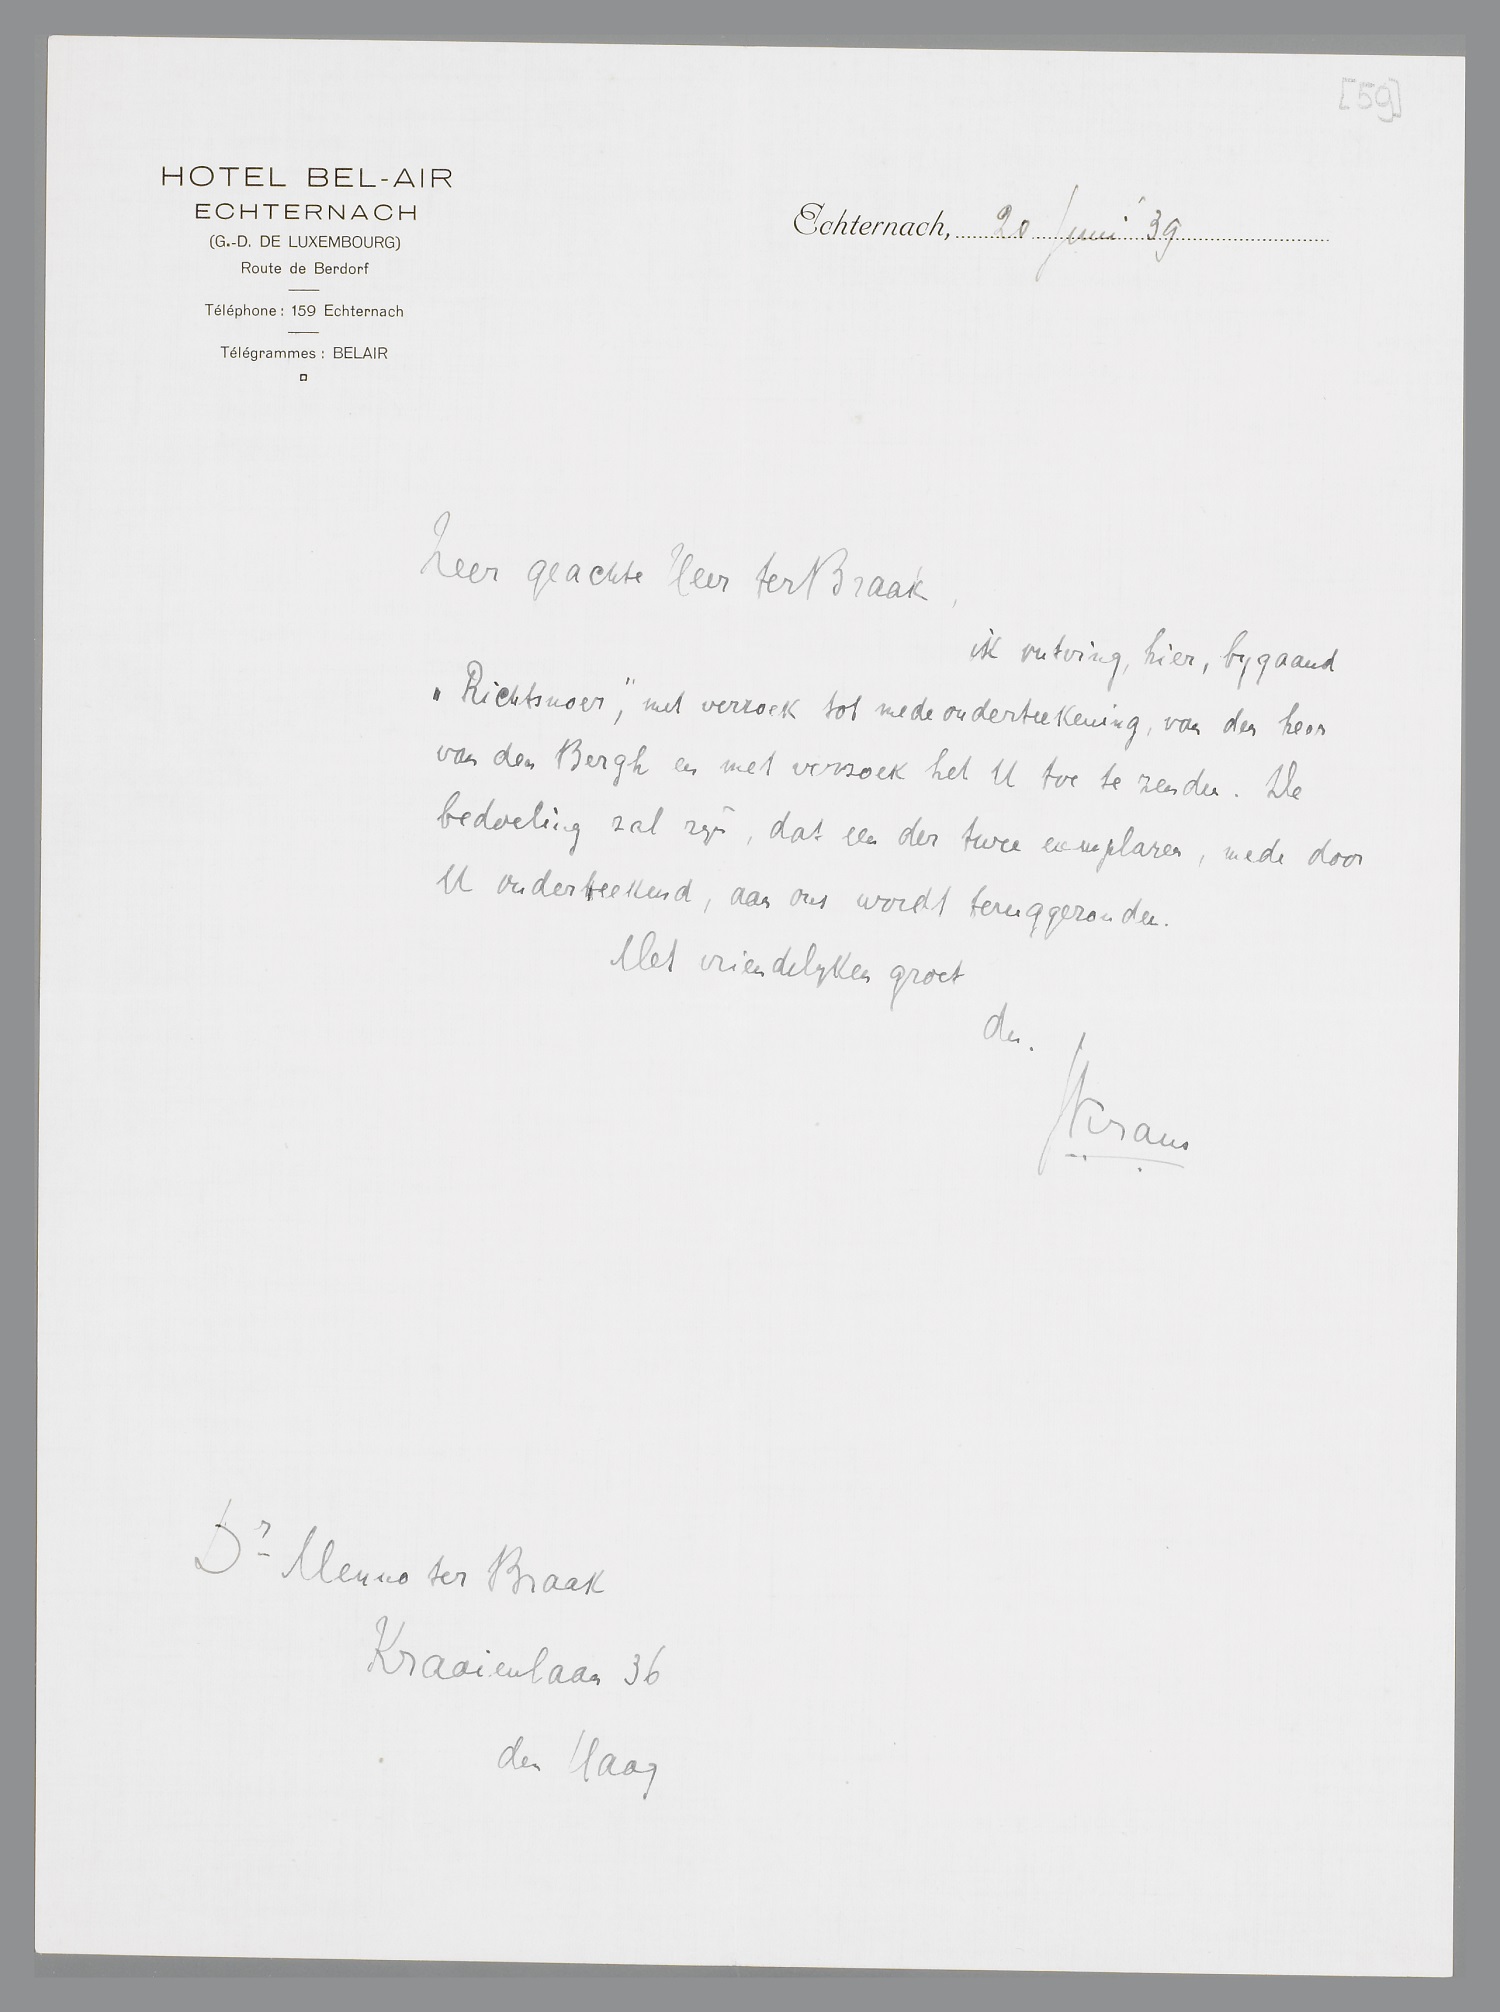 [59]
HOTEL BEL-AIR
ECHTERNACH
(G.-D. DE LUXEMBOURG)
Route de Berdorf
Téléphone : 159 Echternach
Télégrammes : BELAIR
Echternach, 20 Juni '39
Zeer geachte Heer ter Braak,
ik ontving, hier, bygaand
„Richtsnoer", met verzoek tot mede onderteekening, van den heer
van den Bergh en met verzoek het U toe te zenden. De
bedoeling zal zyn, dat een der twee exemplaren, mede door
U onderteekend, aan ons wordt teruggezonden.
Met vriendelyken groet
den.
Kraus
Dr Menno ter Braak
Kraaienlaan 36
den Haag